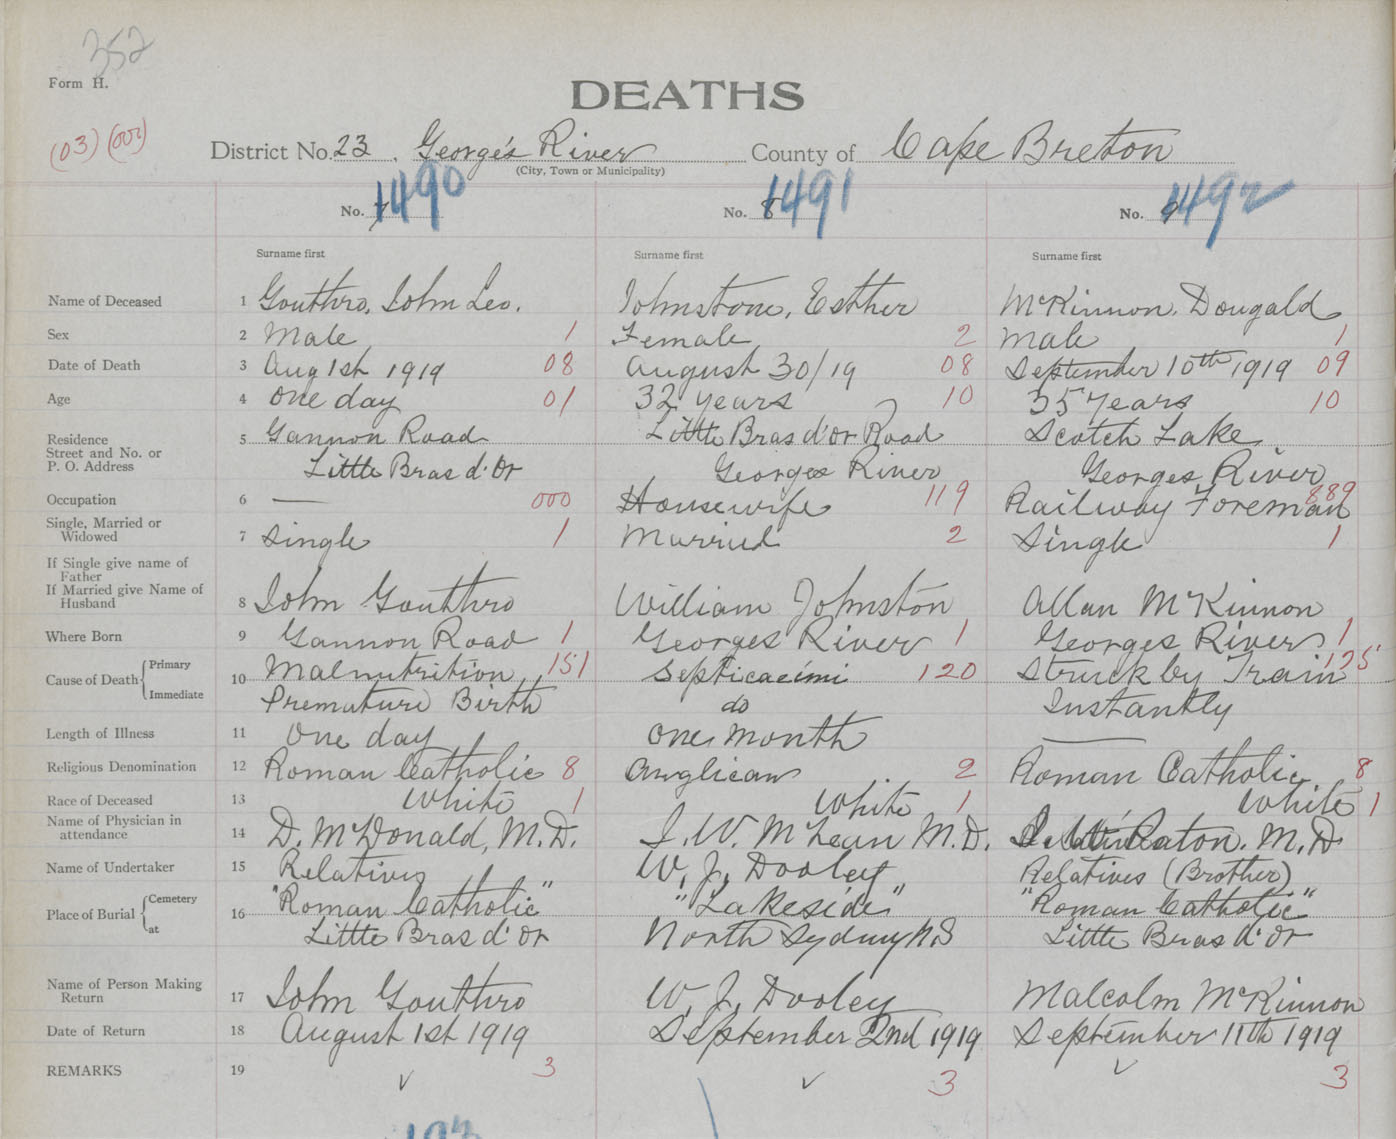 352
Form H.
DEATHS
(03) (00)
District No. 23, George's River County of Cape Breton
(City, Town or Municipality)
No. 7 1490 No. 8 1491 No. 9 1492
Surname first Surname first Surname first
Name of Deceased 1 Gouthro, John Leo. Johnstone, Esther McKinnon, Dougald
Sex 2 Male 1 Female 2 Male 1
Date of Death 3 Aug 1st 1919 08 August 30/19 08 September 10th 1919 09
Age 4 One day 01 32 years 10 35 Years 10
Residence
Street and No. or
P. O. Address
5 Gannon Road Little Bras d'Or Road Scotch Lake
Little Bras d'Or Georges River Georges River
Occupation 6 — 000 Housewife 119 Railway Foreman 889
Single, Married or
Widowed
7 Single 1 Married 2 Single 1
If Single give name of
Father
If Married give Name of
Husband
8 John Gouthro William Johnston Allan McKinnon
Where Born 9 Gannon Road 1 Georges River 1 Georges River 1
Cause of Death { Primary Immediate
10 Malnutrition 151 Septicaeimi 120 Struck by Train 175
Premature Birth do Instantly
Length of Illness 11 One day One month —
Religious Denomination 12 Roman Catholic 8 Anglican 2 Roman Catholic 8
Race of Deceased 13 White 1 White 1 White 1
Name of Physician in
attendance
14 D. McDonald, M.D. J. W. McLean M.D. M.D
Name of Undertaker 15 Relatives W. J. Dooley Relatives (Brother)
Place of Burial { Cemetery at
16 "Roman Catholic" "Lakeside" "Roman Catholic"
Little Bras d'Or North Sydney N.S Little Bras d'Or
Name of Person Making
Return
17 John Gouthro W. J. Dooley Malcolm McKinnon
Date of Return 18 August 1st 1919 September 2nd 1919 September 11th 1919
REMARKS 19 3 3 3